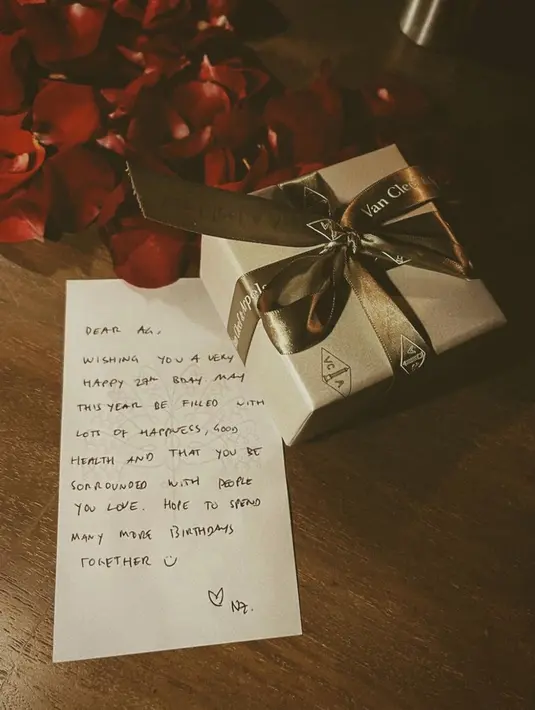 Van Cle
VCA
DEAR AG,
WISHING YOU A VERY
HAPPY 29th BDAY. MAY
THIS YEAR BE FILLED WITH
LOTS OF HAPPINESS, GOOD
HEALTH AND THAT YOU BE
SORROUNDED WITH PEOPLE
YOU LOVE. HOPE TO SPEND
MANY MORE BIRTHDAYS
TOGETHER